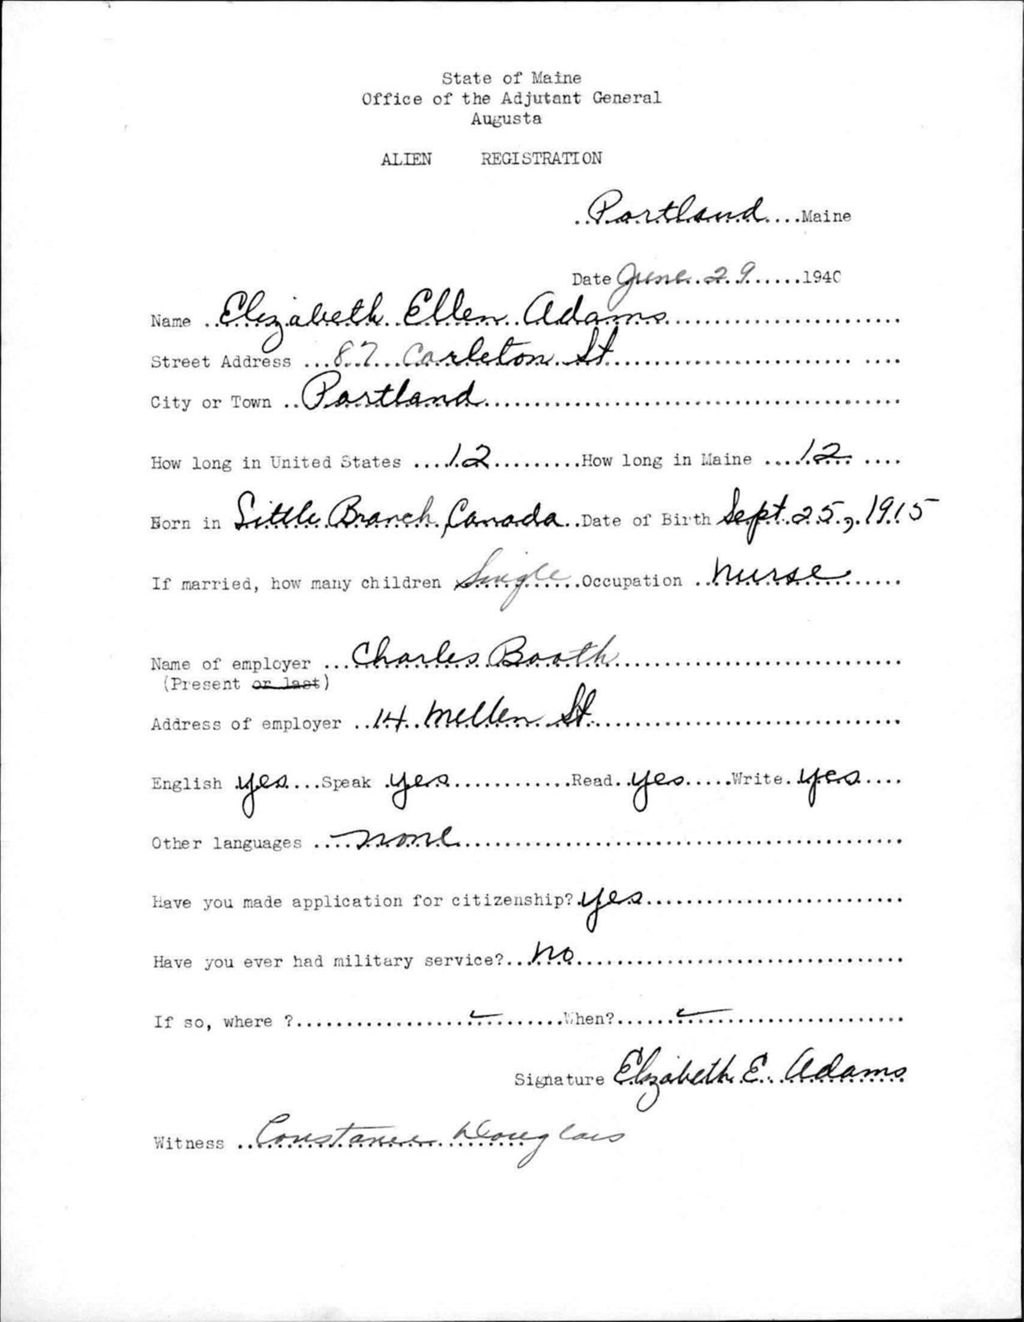 State of Maine
Office of the Adjutant General
Augusta
ALIEN REGISTRATION
Portland Maine
Date June 29 1940
Name Elizabeth Ellen Adams
Street Address 87 Carleton St
City or Town Portland
How long in United States 12 How long in Maine 12
Born in Little Branch, Canada Date of Birth Sept. 25, 1915
If married, how many children Single Occupation Nurse
Name of employer Charles Booth
(Present or last)
Address of employer 14 Mellen St
English yes Speak yes Read yes Write yes
Other languages none
Have you made application for citizenship? yes
Have you ever had military service? no
If so, where ? When?
Signature Elizabeth E. Adams
Witness Constance Douglass